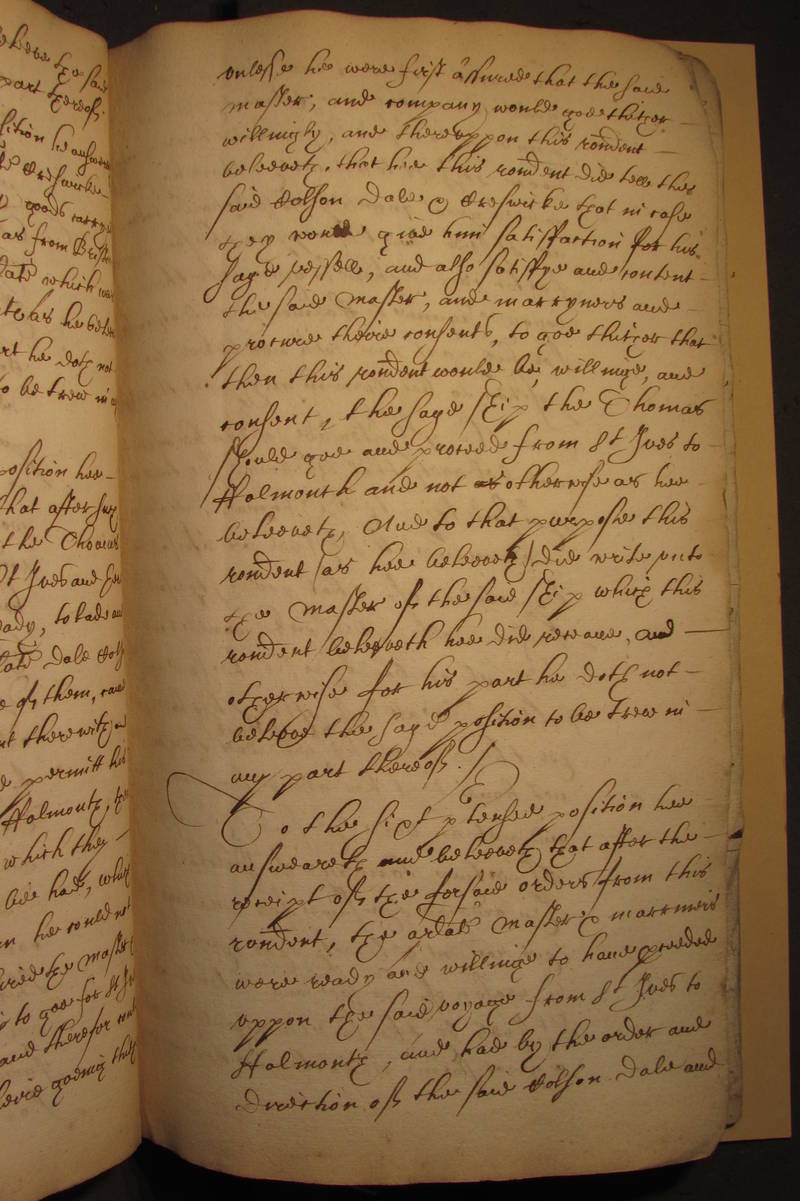 eleeve the said
part thereof.
sition he answer
Creswicke
goods carry
as from Bristoll
late which was
this as he beleev
rt he doth not
o be trew in a
position hee
that after suc
the Thomas
St Ives and
eady, to lade and
late Dale
e of them,
nt therewith
permitt his
Falmouth, the
which they
bee had, which
n he could not
ured the master
to goe for St Iv
and therefor
their goeing thith
unlesse he were first assured that the said
master, and company would goe thither
willingly, and thereuppon this rondent
beleeveth, that hee this rondent did tell the
said Colson Dale & Creswicke that in case
they would give him satisfaction for his
sayd vessell, and also satisfye and content
the said Master, and marryners and
procure theire consents, to goe thither that
then this rondent would be, willinge, and
consent, the sayd ship the Thomas
should goe and proceed from St Ives to
Falmouth and not as otherwise as hee
beleeveth, And to that purpose this
rondent (as hee beleeveth) did write unto
the Master of the said ship which this
rondent beleeveth hee did receave, and
otherwise for his part he doth not
beleeve the sayd position to be trew in
any part thereof./
To the sixt ptensed position hee
answeareth and beleeveth that after the
receipt of the forsaid orders from this
rondent, the arlate Master & marriners
were ready and willinge to have proceeded
uppon the said voyage from St Ives to
Falmouth, and had by the order and
direction of the said Colson Dale and